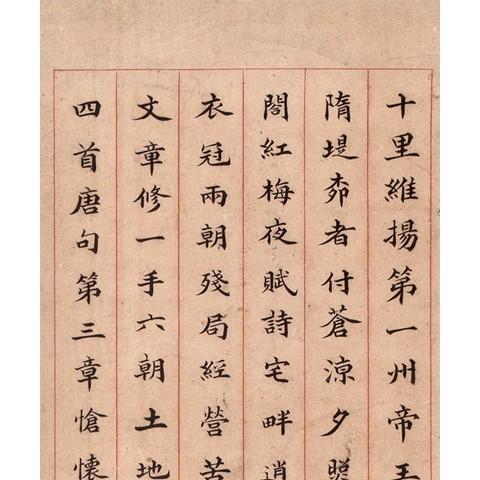 十里維揚第一州帝王
隋堤者付蒼涼夕照
閣紅梅夜賦詩宅畔逍
衣冠兩朝殘局經營苦
文章修一手六朝土地
四首唐句第三章愴懷